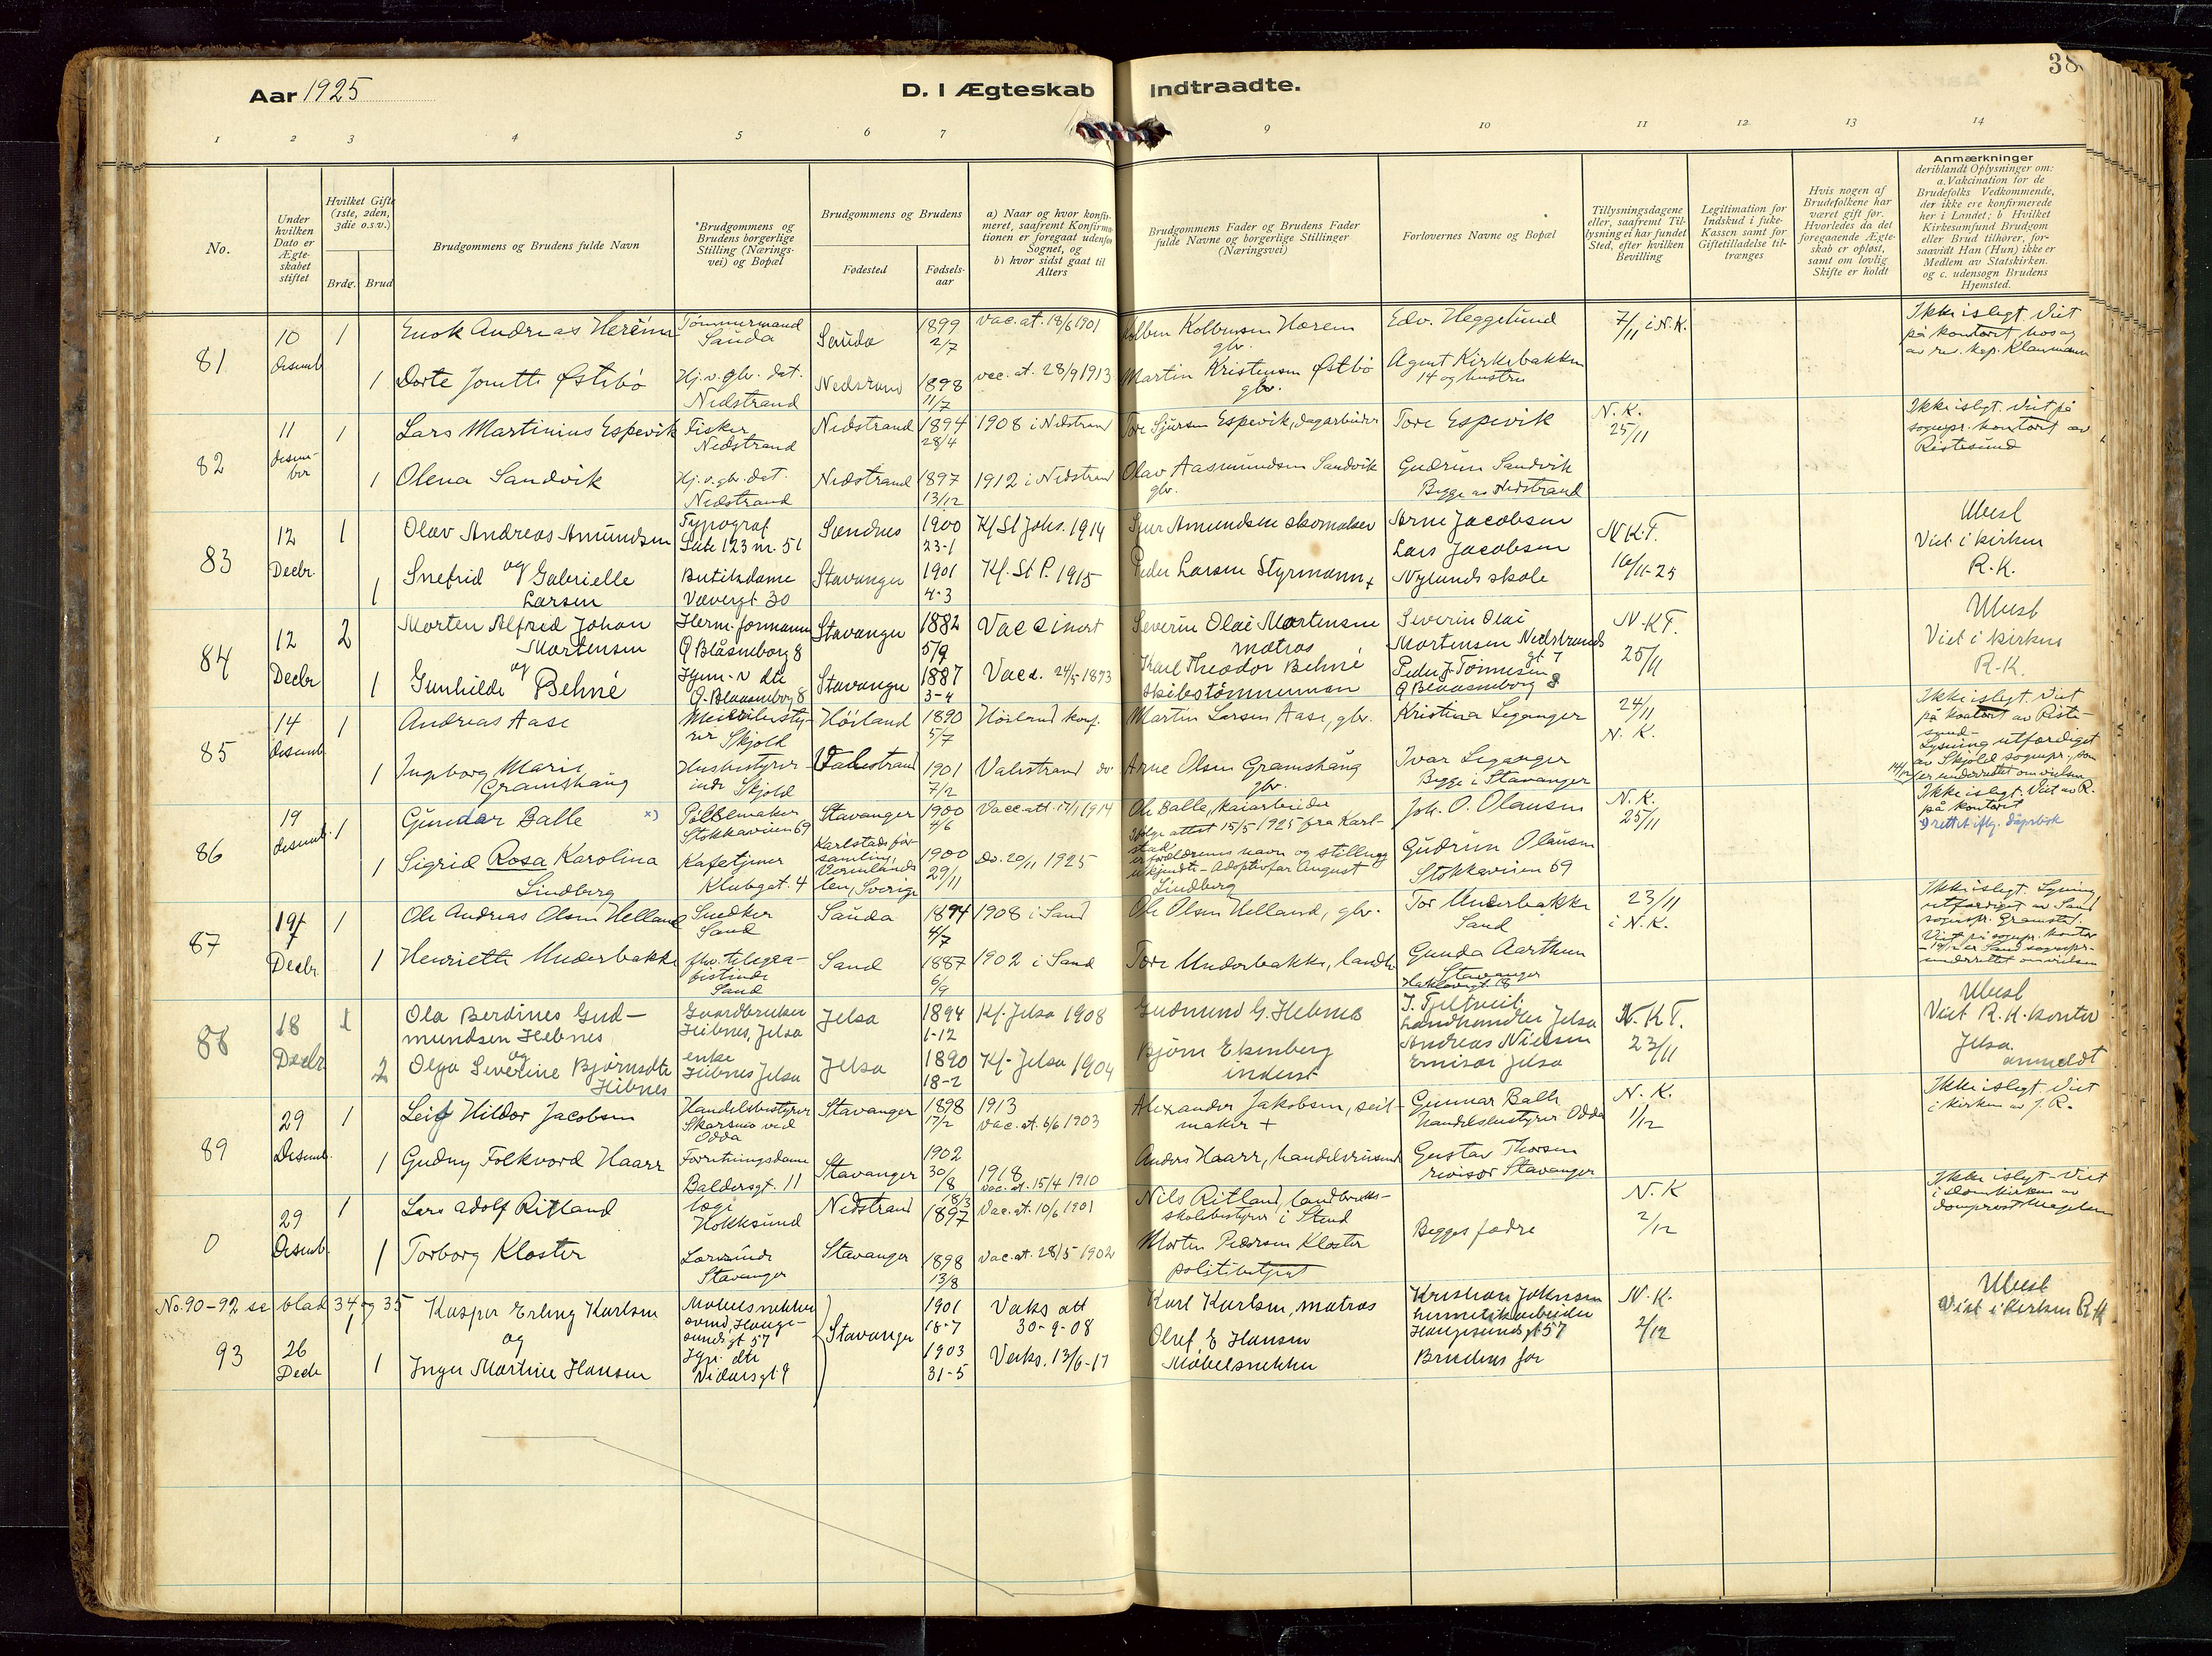 38
Aar 1925
D. I Ægteskab Indtraadte.
1 2 3 4 5 6 7 9 10 11 12 13 14
No.
Under hvilken Dato er Ægteskabet stiftet
Hvilket Gifte (1ste, 2den, 3die o.s.v.)
Brdg. Brud
Brudgommens og Brudens fulde Navn
*Brudgommens og Brudens borgerlige Stilling (Næringsvei) og Bopæl
Brudgommens og Brudens
Fødested
Fødselsaar
a) Naar og hvor konfirmeret, saafremt Konfirmationen er foregaaet udenfor Sognet, og
b) hvor sidst gaat til Alters
Brudgommens Fader og Brudens Fader fulde Navne og borgerlige Stillinger (Næringsvei)
Forlovernes Navne og Bopæl
Tillysningsdagene eller, saafremt Tillysning ei har fundet Sted, efter hvilken Bevilling
Legitimation for Indskud i Enke-Kassen samt for Giftetilladelse tiltrænges
Hvis nogen af Brudefolkene har været gift før. Hvorledes da det foregaaende Ægteskab er opløst, samt om lovlig Skifte er holdt
Anmærkninger
deriblandt Oplysninger om: a. Vakcination for de Brudefolks Vedkommende, der ikke ere konfirmerede her i Landet; b Hvilket Kirkesamfund Brudgom eller Brud tilhører, forsaavidt Han (Hun) ikke er Medlem av Statskirken. og c. udensogn Brudens Hjemsted.
81 10 desemb. 1 Enok Andreas Hereim Tømmermand Sauda Sauda 1899 2/7 Vac. at. 18/6 1901 Kolben Kolbensen Hærem gbr. Edv. Heggelund 7/11 i N.K. Ikke i slegt. Viet på kontoret hos og av res. kap. Klaumann
1 Dorte Jonette Østebö Hj. v. gbr. dat. Nedstrand Nedstrand 1898 11/7 vac. at. 28/9 1913 Martin Kristensen Østbö gbr. Agent Kirkebakken 14 og hustru
82 11 desember 1 Lars Martinius Espevik Fisker Nedstrand Nedstrand 1894 28/4 1908 i Nedstrand Tore Sjursen Espevik, dagarbeider Tore Espevik N.K. 25/11 Ikke i slegt. Viet på sognepr. kontoret av Ristesund
1 Olena Sandvik Hj. v. gbr. dat. Nedstrand Nedstrand 1897 13/12 1912 i Nedstrand Olav Aasmundsen Sandvik gbr. Gudrun Sandvik Begge av Nedstrand
83 12 Decbr. 1 Olav Andreas Amundsen Typograf 123 nr. 51 Sandnes 1900 23-1 Kf St Johs. 1914 Sjur Amundsen skomaker Arne Jacobsen Lars Jacobsen N.K.T. 16/11-25 Ubesl Viet i kirken R.K.
og
1 Snefrid Gabrielle Larsen Butikdame Vævergt 30 Stavanger 1901 4-3 Kf. St P. 1915 Peder Larsen Styrmann + Nylunds skole
84 12 Decbr 2 Morten Alfred Johan Mortensen Herm. formann Ø Blåsneborg 8 Stavanger 1882 5/9 Vaccinert Severin Olai Mortensen matros Severin Olai Mortensen Nedstrands gt 7 N.K.T. 25/11 Ubesl Viet i kirken R.K.
og
1 Gunhilde Behné Hjem. v dtr Ø. Blaasneborg 8 Stavanger 1887 3-4 Vacc. 24/5 1893 Karl Theodor Behné skibstømmerman Peder J. Tönnesen Ø Blaasneborg 8
85 14 desemb. 1 Andreas Aase Meieribestyrer Skjold Höiland 1890 5/7 Höiland konf. Martin Larsen Aase, gbr. Kristina Leganger 24/11 N.K. Ikke i slegt. Viet på kontoret av Ristesund. Lysning utfærdiget av Skjold sognepr., som 14/12 er underrettet om vielsen
1 Ingeborg Marie Gramshaug Husbestyrerinde Skjold Valestrand 1901 7/2 Valestrand do Arne Olsen Gramshaug gbr. Ivar Leganger Begge i Stavanger
86 19 desemb. 1 Gunder Balle x) Pölsemaker Stokkaveien 69 Stavanger 1900 4/6 Vacc. att. 17/1 1914 Ole Balle, kaiarbeider Joh. O. Olausen N.K. 25/11 Ikke i slegt. Viet av R. på kontoret
x) rettet iflg. dåpsbok
1 Sigrid Rosa Karolina Lindberg Kafetjener Klubgat. 4 Karlstads församling, Vermlands len, Sverige 1900 29/11 do. 20/11 1925 Ifølge attest 15/5 1925 fra Karlstad er forældrenes navn og stilling ukjendt - Adoptivfar August Lindberg Gudrun Olausen Stokkaveien 69
87 19 Decbr. 1 Ole Andreas Olsen Helland Snedker Sand Sauda 1894 4/7 1908 i Sand Ole Olsen Helland, gbr. Tor Underbakke Sand 23/11 i N.K. Ikke i slegt. Lysning utfærdiget av Sand sognepr. Gramstad. Viet på sognepr. kontor - 19/12 er Sand sognepr. underrettet om vielsen
1 Henriette Underbakke fhv. telegrafistinde Sand Sand 1887 6/9 1902 i Sand Tore Underbakke, landh. Gunda Aarthun Stavanger
88 18 Decbr 1 Ola Berdines Gudmundsen Hebnes Gaardbruker Hebnes, Jelsa Jelsa 1894 1-12 Kf. Jelsa 1908 Gudmund G. Hebnes T. Tjeltveit Landhandler Jelsa N.K.T. 23/11 Ubesl Viet R.K. kontor Jelsa anmeldt
og
2 Olga Severine Bjørnsdtr Hebnes enke Hebnes Jelsa Jelsa 1890 18-2 Kf. Jelsa 1904 Bjørn Ekenberg inderst Andreas Nielsen Emisær Jelsa
89 29 Desemb. 1 Leif Hildor Jacobsen Handelsbestyrer Skarsmo ved Odda Stavanger 1898 17/2 1913 Vac. at. 6/6 1903 Alexander Jakobsen, seilmaker + Gunnar Balle Handelsbestyrer Odda N.K. 1/12 Ikke i slegt. Viet i kirken av J. R.
1 Gudny Folkvord Haarr Forretningsdame Baldersgt. 11 Stavanger 1902 30/8 1918 vac. at. 15/4 1910 Anders Haarr, handelsreisend Gustav Thorsen revisor Stavanger
0 29 Desemb. 1 Lars Adolf Ritland læge Hokksund Nedstrand 18/3 1897 Vac. at. 10/6 1901 Nils Ritland, landbruksskolebestyrer i Stend Begges fædre N.K 2/12 Ikke i slegt - Viet i Domkirken av domprost
1 Torborg Kloster Lærerinde Stavanger Stavanger 1898 13/8 Vac. at. 28/5 1902 Morten Pedersen Kloster politibetjent
No. 90-92 se blad 34 og 35
93 26 Decbr 1 Kasper Erling Karlsen Møbelsnekker svend, Haugesundsgt 57 Stavanger 1901 18-7 Vaks att 30-9-08 Karl Karlsen, matros Kristian Johnsen hermetikarbeider Haugesundsgt 57 N.K. 2/12 Ubesl Viet i kirken R.K
og
1 Inger Martine Hansen Hjv. dtr Vidarsgt 9 1903 31-5 Vaks. 13/6-17 Oluf E Hansen Møbelsnekker Brudens far